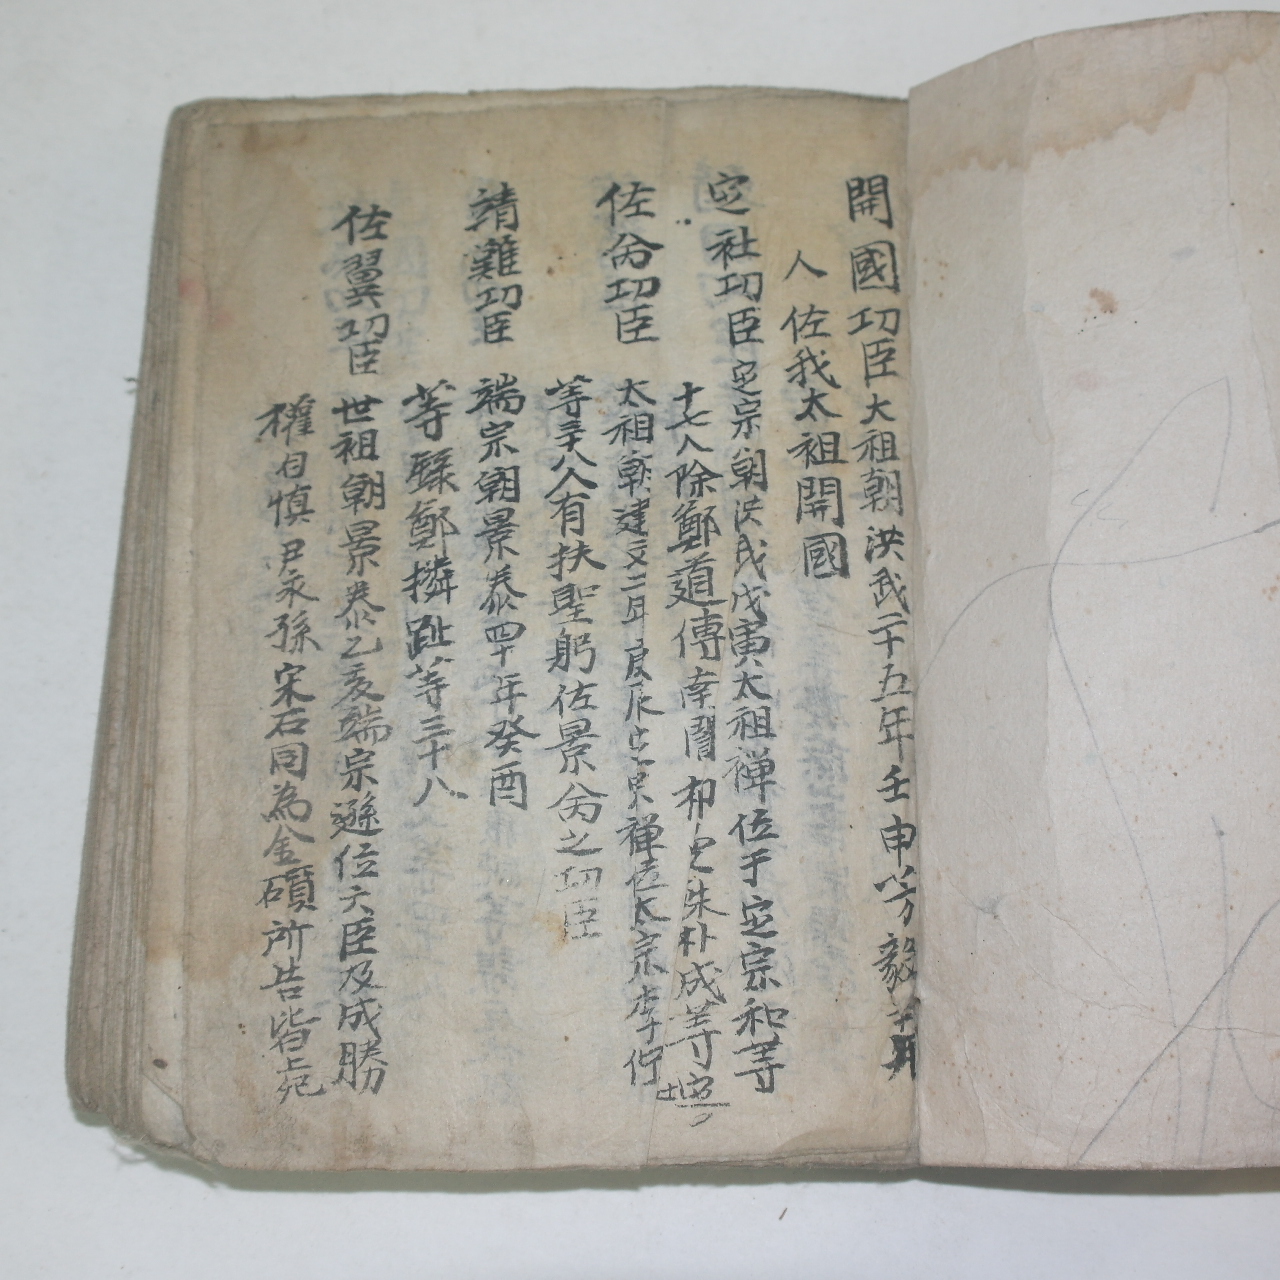 開國功臣 太祖朝洪武二十五年壬申芳毅等
人佐我太祖開國
定社功臣 定宗朝洪武戊寅太祖禅位于定宗和等
十七人除鄭道傳南誾 朱朴成等
佐命功臣 太祖朝建文二年庚辰定宗禅位太宗李佇
等三十八人有扶聖躬佐景命之功臣
靖難功臣 端宗朝景泰四十年癸酉
等録鄭撛趾等三十八
佐翼功臣 世祖朝景泰乙亥端宗遜位六臣及成勝
權自慎尹永孫宋石同為金礩所告皆死